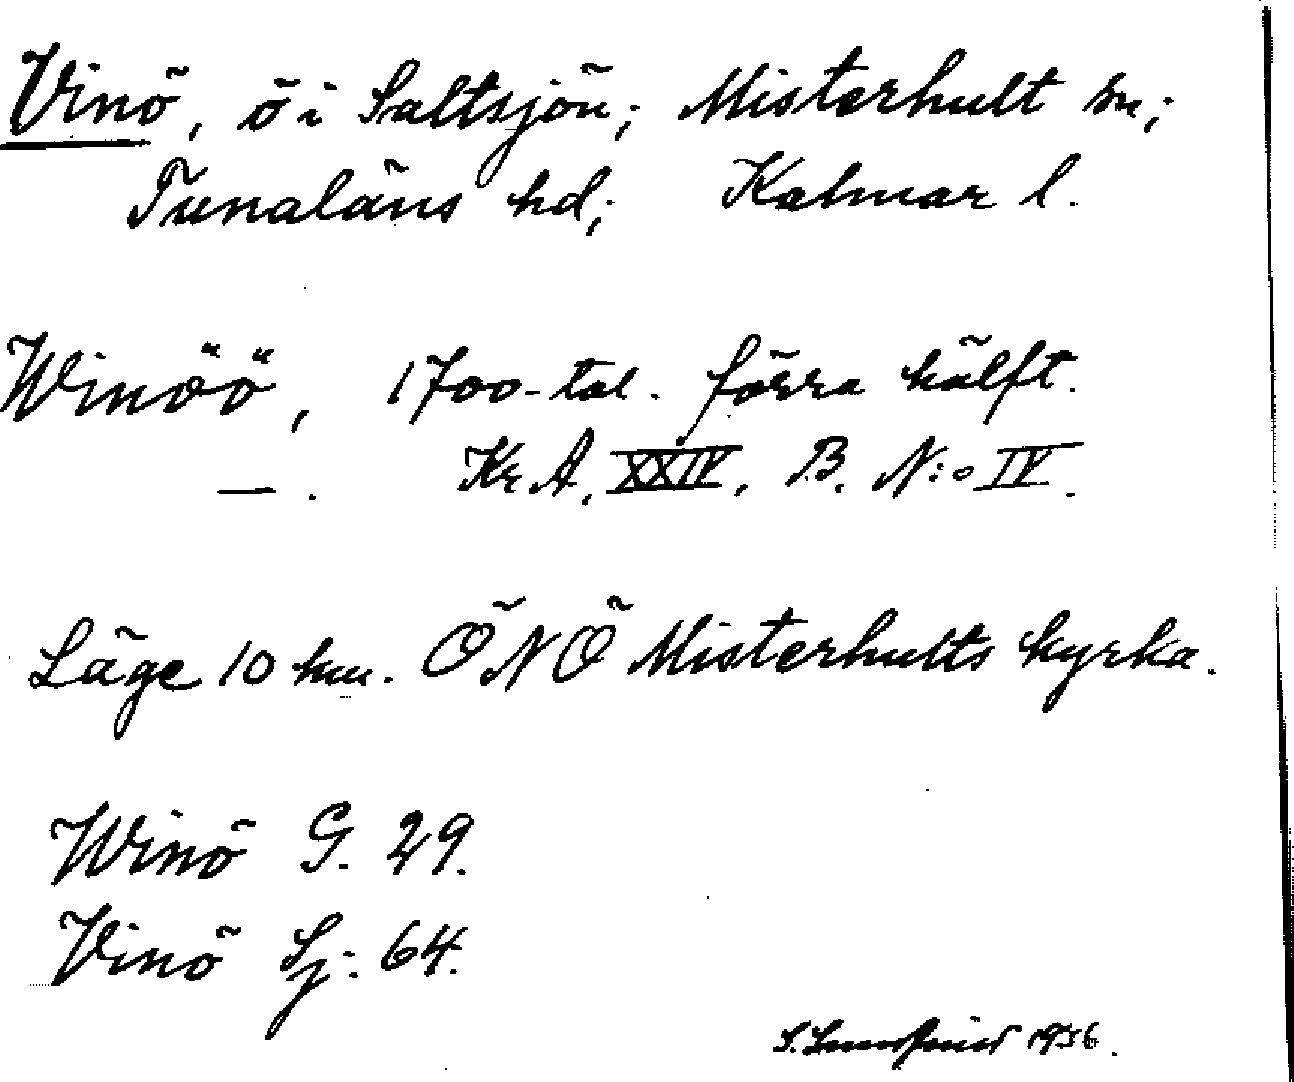 Vinö, ö i Saltsjön; Misterhult sn;
Tunaläns hd; Kalmar l.
Winöö, 1700-tal. förra hälft.
— . Kr. A. XXIV. B. N:o IV.
Läge 10 km. ÖNÖ Misterhults kyrka.
Winö G. 29.
Vinö Sj. 64.
S. 1936.